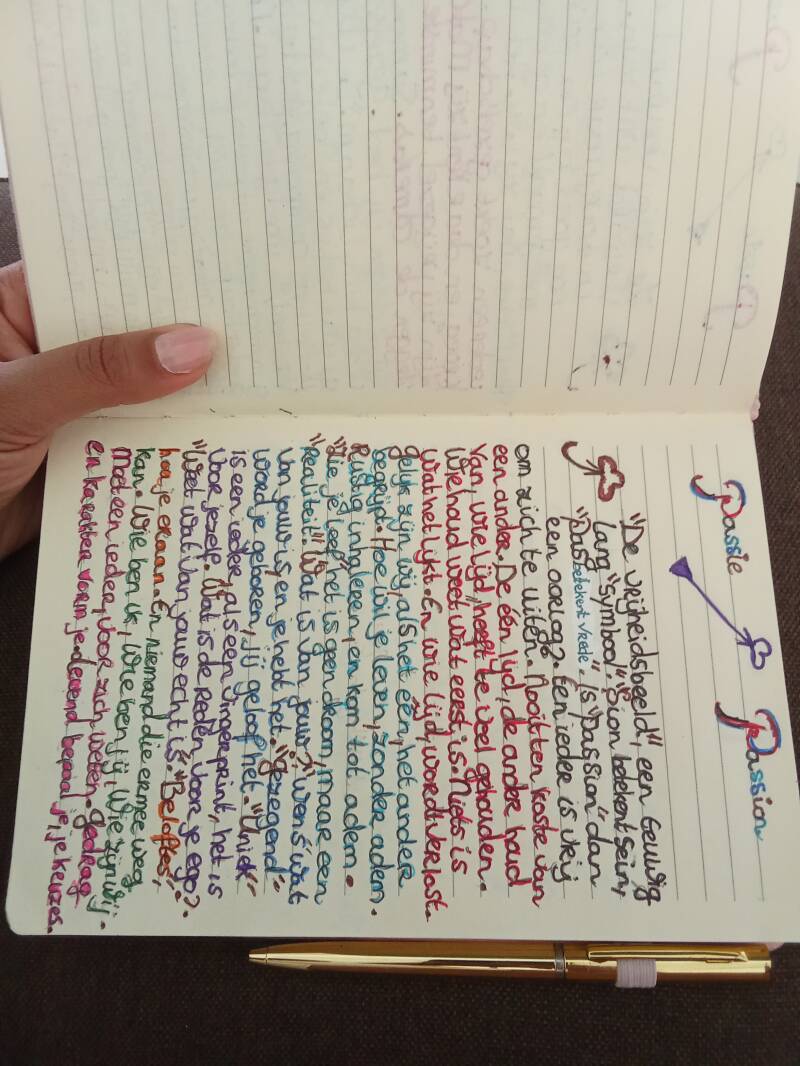 Passie Passion
"De vrijheidsbeeld", een Eeuwig
lang "symbool". "Sion betekent sein,
"Pas betekent vrede", is "passion" dan
een oorlog?. Een ieder is vrij
om zich te uiten. Nooit ten koste van
een ander. De één lijd, de ander haud
Van wie lijd, heeft te veel gehouden.
Wie haud weet wat eerst is. Niets is
wat het lijkt. En wie lijd, wordt verlost.
gelijk zijn wij, als het één, het ander
begrijp. Hoe wil je leven, zonder adem.
Rustig inhaleren, en kom tot adem.
"Die je leef", het is geen droom, maar een
"Realiteit". "Wat is van jouw?, wens wat
van jouw is, en je hebt het. "gezegend"
word je geboren, jij geloof het. "Uniek"
is een ieder, als een vingerprint, het is
voor jezelf. Wat is de reden voor je ego?.
"Weet wat van jouw echt is". "Beloftes",
hou je eraan. En niemand die ermee weg
kan. Wie ben ik, wie ben jij, wie zijn wij.
Moet een ieder, voor zich, weten. gedrag
en karakter vorm je. Levend bepaal je, je keuzes.